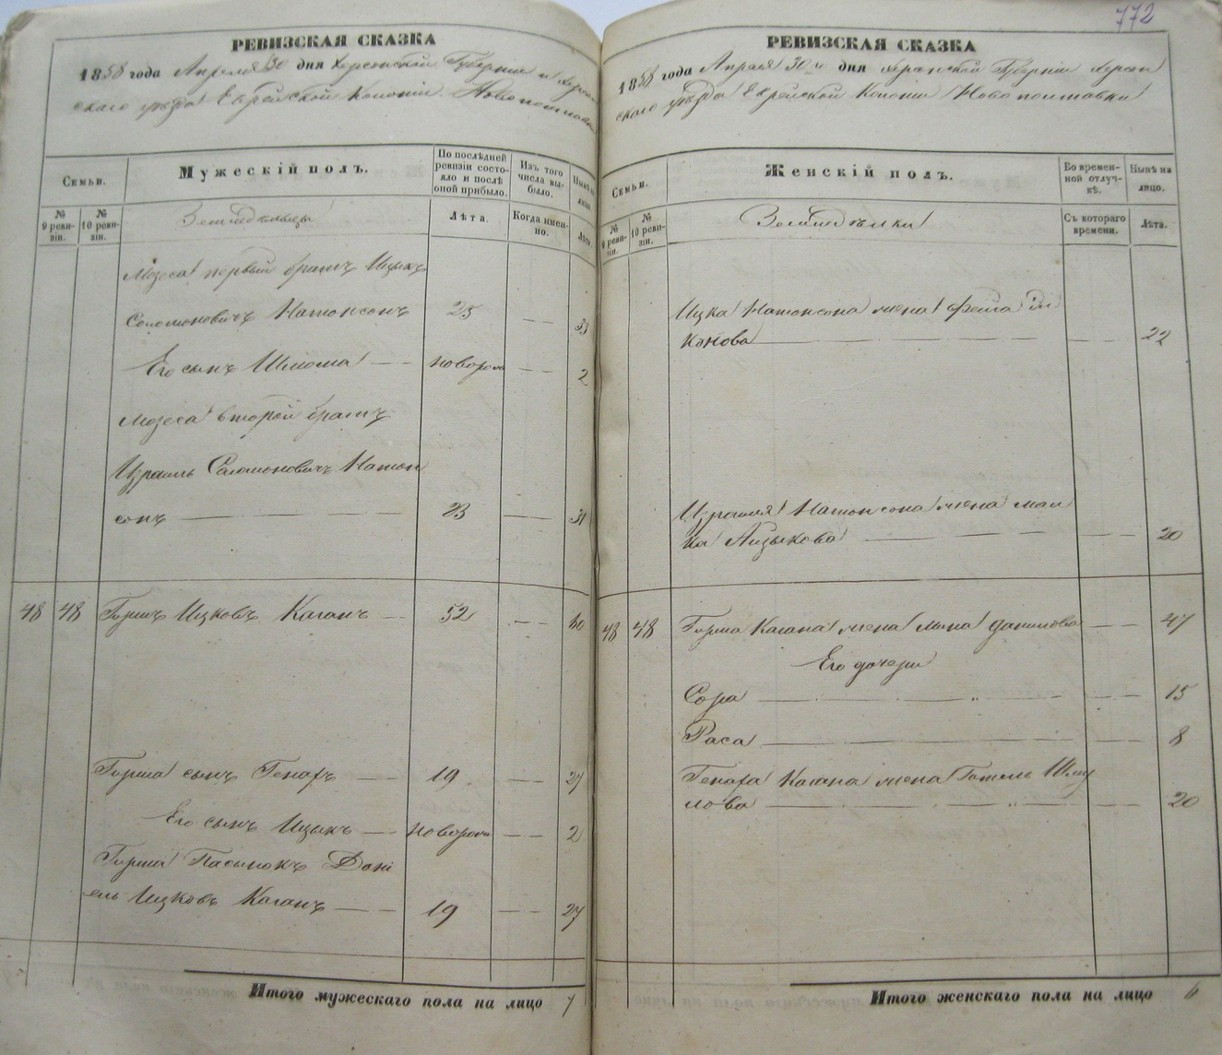 772
РЕВИЗСКАЯ СКАЗКА
1858 года Апреля 30 дня Херсонской Губернии и Херсон
скаго уезда Еврейской Колонии Новополтавки
Семьи.
Мужескій полъ.
По последней ревизіи состояло и после оной прибыло.
Изъ того числа выбыло.
Ныне на лицо.
№ 9 ревизіи.
№ 10 ревизіи.
Земледельцы
Лѣта.
Когда именно.
Лѣта.
Мозеса первый братъ Ицыкъ
Соломоновичъ Натонсонъ 25 33
Его сынъ Шлиома новорож 2
Мозеса второй братъ
Израиль Саломоновичъ Натон
сонъ 23 31
48 48 Гиршъ Ицковъ Каганъ 52 60
Гирша сынъ Генахъ 19 27
Его сынъ Ицыкъ новорож 2
Гирша Пасынокъ Дані
ель Ицковъ Каганъ 19 27
Итого мужескаго пола на лицо 7
РЕВИЗСКАЯ СКАЗКА
1858 года Апреля 30 дня Херсонской Губерніи Херсон
скаго уезда Еврейской Колоніи Новополтавки
Семьи.
Женскій полъ.
Во временной отлучкѣ.
Нынѣ на лицо.
№ 9 ревизіи.
№ 10 ревизіи.
Земледѣлки
Съ котораго времени.
Лѣта.
Ицка Натонсона жена Фейга
22
Израиля Натонсона жена мал
ка Айзыкова 20
48 48 Гирша Кагана жена Данилова 47
Его дочери
Сора 15
Раса 8
Генаха Кагана жена Шму
лова 20
Итого женскаго пола на лицо 6